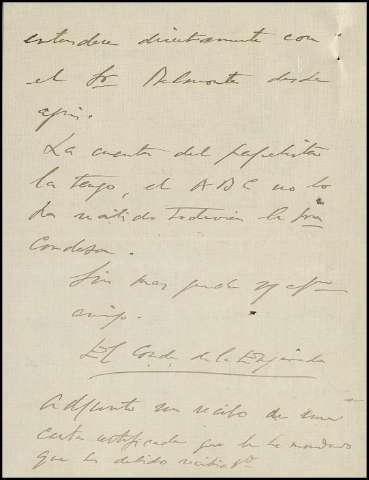 entenderse directamente con
el Sr Belmonte desde
aqui.
La cuenta del papelista
la tengo, el ABC no lo
ha recibido todavia la Sra
Condesa.
Sin mas queda su afmo
amigo.
El Conde de la
Adjunto un recibo de una
carta certificada que le he mandado
que ha debido recibir